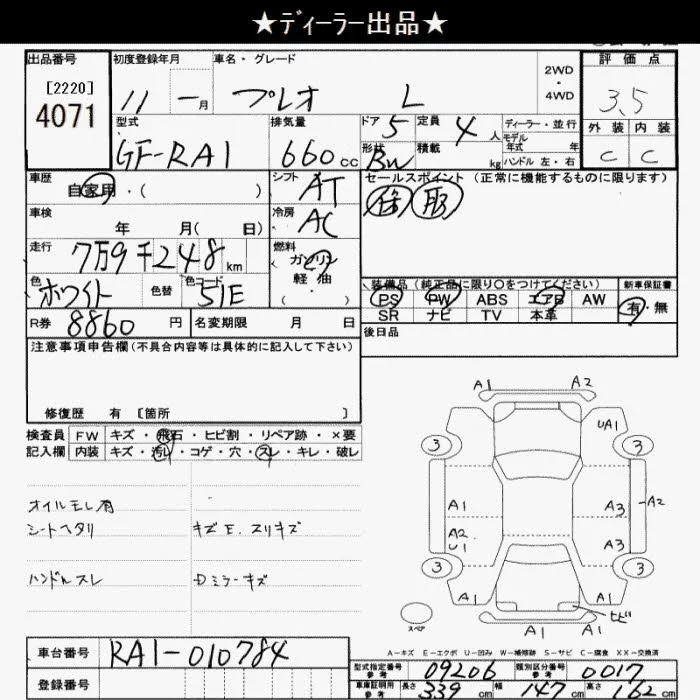 ★ディーラー出品★
出品番号
[2220]
4071
初度登録年月
11 ー月
車名・グレード
プレオ L
2WD
・
4WD
評価点
3.5
外装 内装
C C
型式
GF-RA1
排気量
660cc
ドア 5
定員 4人
形状 BW
積載 kg
ディーラー・並行
モデル年式 年
ハンドル 左・右
車歴
自家用・( )
シフト
AT
セールスポイント (正常に機能するものに限ります)
車検
年 月( 日)
冷房
AC
走行
7万9千248km
燃料
ガソリン
軽油
( ・ )
色
ホワイト
色替
色コード
51E
装備品(純正品に限り○をつけてください)
PS PW ABS エアB AW
SR ナビ TV 本革
新車保証書
有・無
R券 8860円
名変期限 月 日
後日品
注意事項申告欄(不具合内容等は具体的に記入して下さい)
修復歴 有 [箇所 ]
検査員
記入欄
FW キズ・飛石・ヒビ割・リペア跡・×要
内装 キズ・汚れ・コゲ・穴・スレ・キレ・破レ
オイルモレ有
シートヘタリ
キズE.スリキズ
ハンドルスレ
Dミラーキズ
A1 A2
UA1
3 3
A1 A3 A2
A2
U1
A3
3 3
A1 A1
ヒビ
A1 A1
スペア
A-キズ E-エクボ U-凹み W-補修跡 S-サビ C-腐食 XX-交換済
車台番号 RA1-010784
登録番号
型式指定番号
参考
09206
類別区分番号
参考
0017
車庫証明用
参考
長さ 339cm 幅 147cm 高さ 62cm